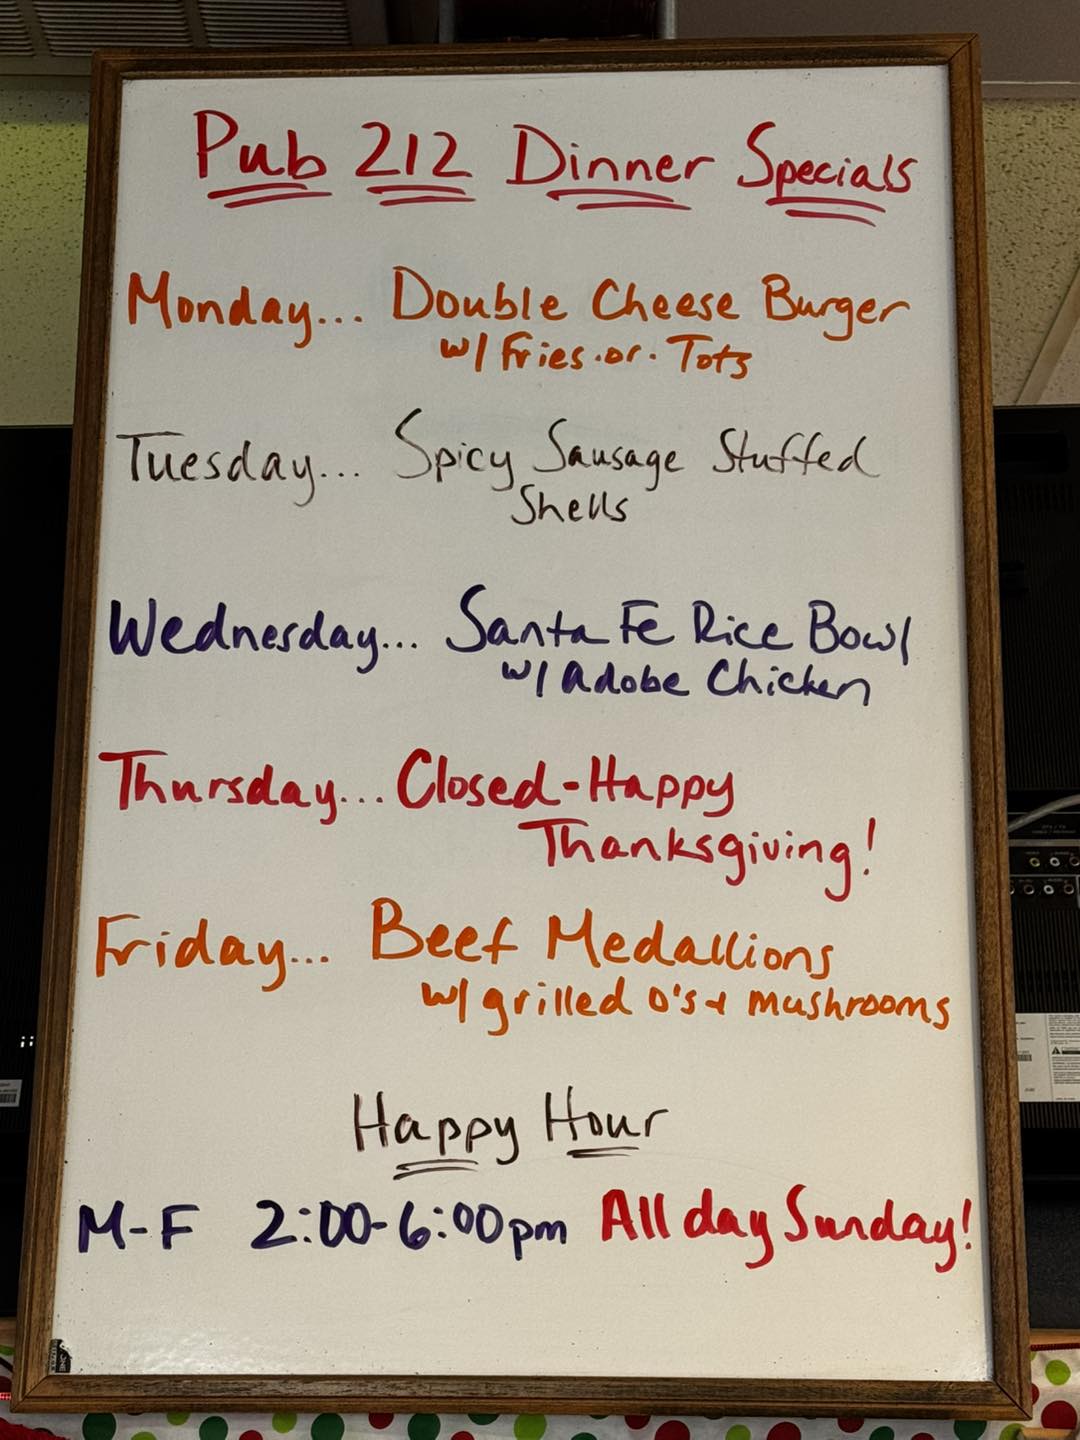 Pub 212 Dinner Specials
Monday... Double Cheese Burger
w/ Fries.or. Tots
Tuesday... Spicy Sausage Stuffed
Shells
Wednesday... Santa Fe Rice Bowl
w/ Adobe Chicken
Thursday... Closed-Happy
Thanksgiving!
Friday... Beef Medallions
w/ grilled O's + mushrooms
Happy Hour
M-F 2:00-6:00pm All day Sunday!